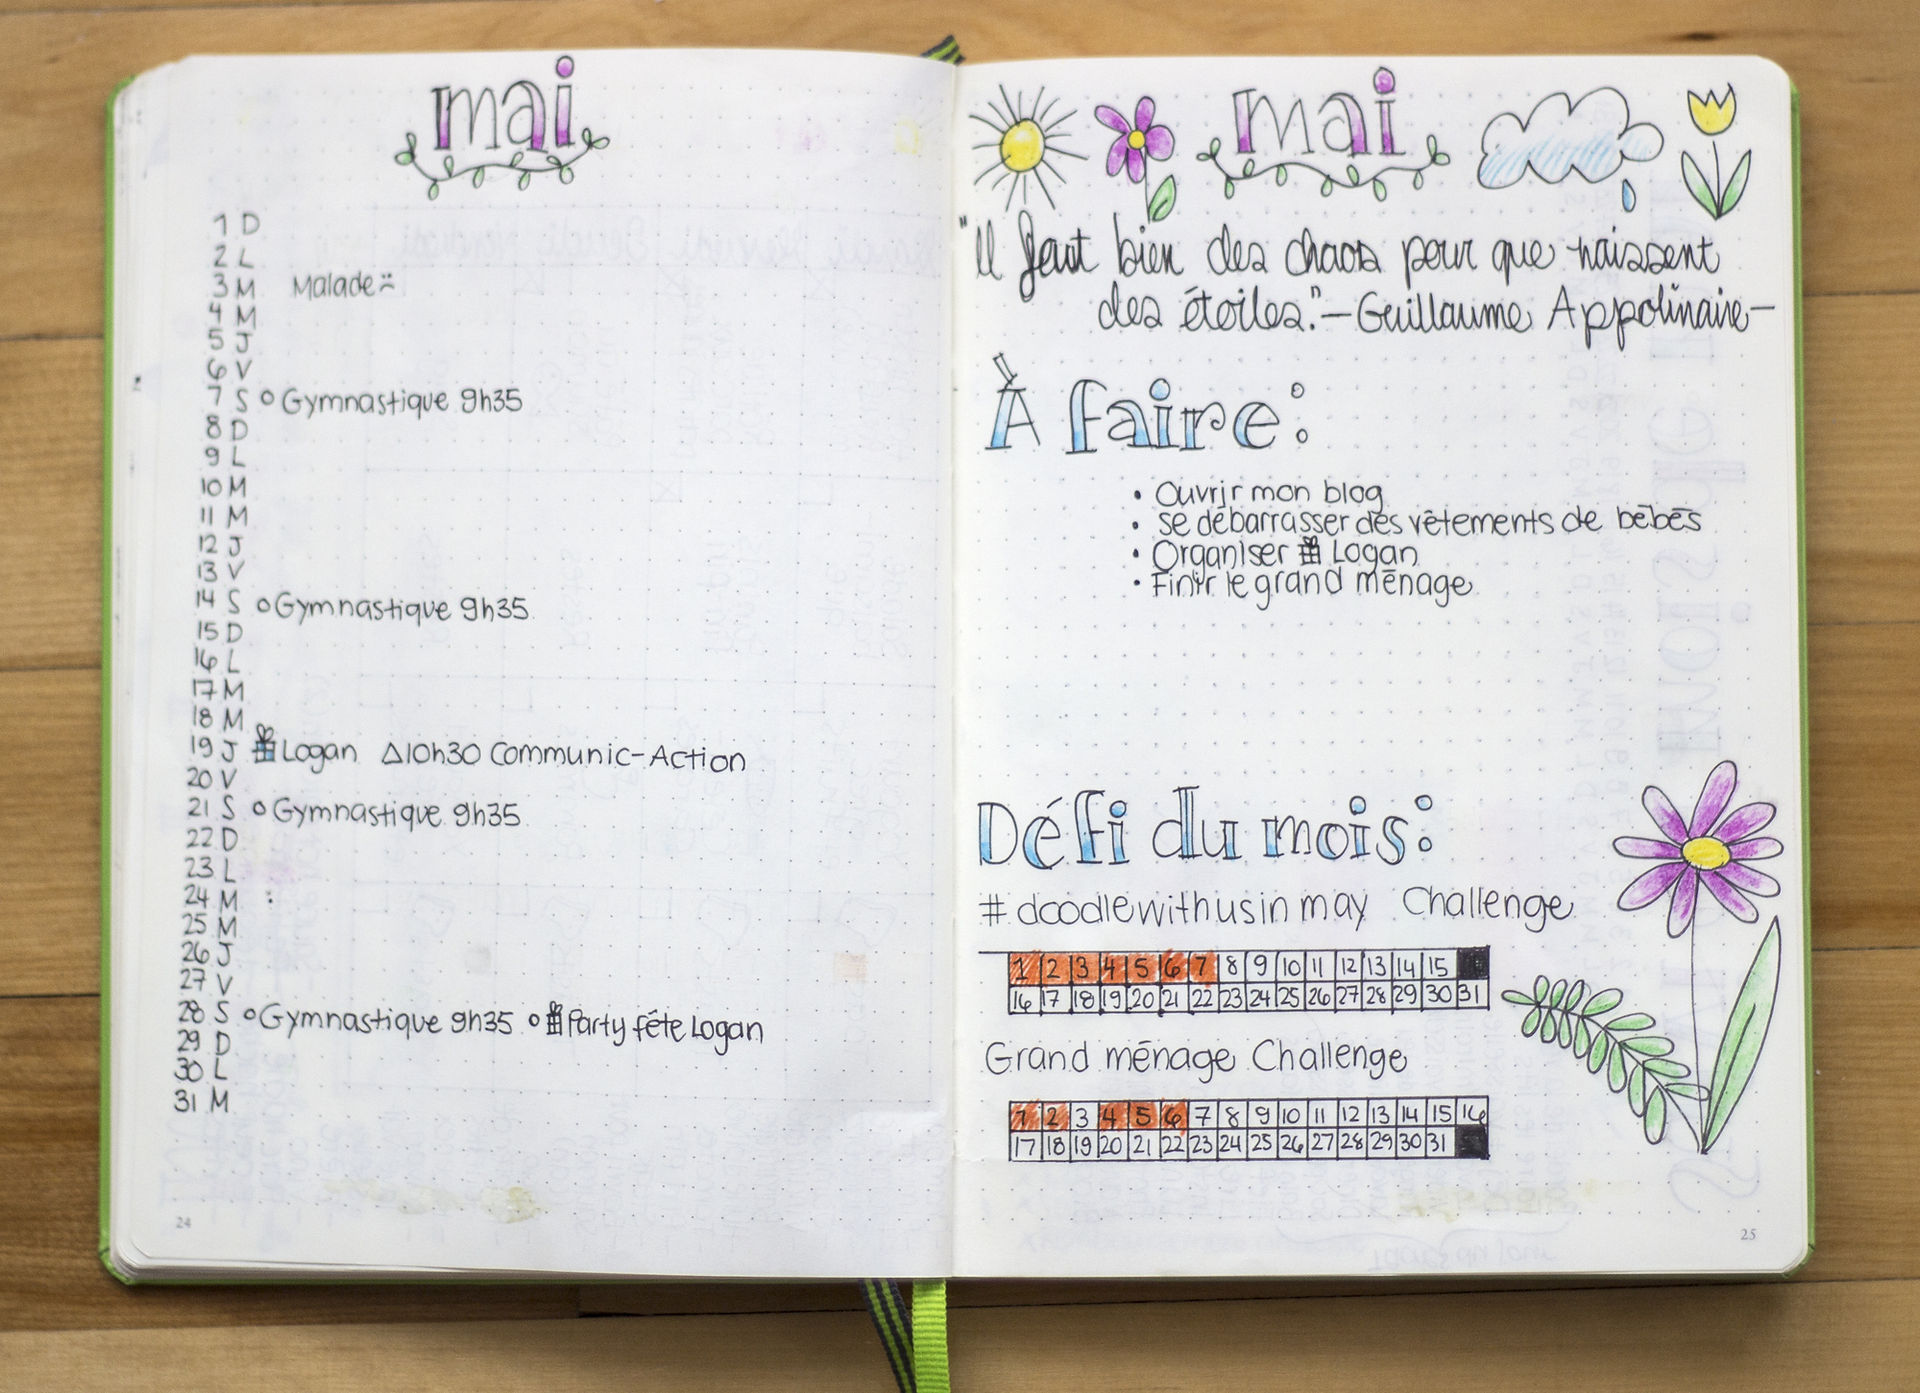 mai
1 D
2 L
3 M Malade
4 M
5 J
6 V
7 S Gymnastique 9h35
8 D
9 L
10 M
11 M
12 J
13 V
14 S Gymnastique 9h35
15 D
16 L
17 M
18 M
19 J Logan Δ10h30 Communic-Action
20 V
21 S Gymnastique 9h35
22 D
23 L
24 M :
25 M
26 J
27 V
28 S Gymnastique 9h35 Party fête Logan
29 D
30 L
31 M
24
mai
"Il faut bien des chaos pour que naissent
des étoiles."-Guillaume Appolinaire-
À faire:
• Ouvrir mon blog
• se débarrasser des vêtements de bébés
• Organiser Logan
• Finir le grand ménage
Défi du mois:
#doodlewithusinmay Challenge
1 2 3 4 5 6 7 8 9 10 11 12 13 14 15
16 17 18 19 20 21 22 23 24 25 26 27 28 29 30 31
Grand ménage Challenge
1 2 3 4 5 6 7 8 9 10 11 12 13 14 15 16
17 18 19 20 21 22 23 24 25 26 27 28 29 30 31
25